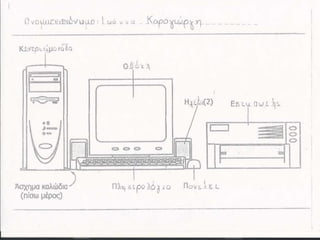 Ονοματεπώνυμο: Ιωάννα Καραγιώργη
Κεντρική μονάδα
Οθόνη
Ηχεία(2)
Εκτυπωτής
Άσχημα καλώδια
(πίσω μέρος)
Πληκτρολόγιο
Ποντίκι